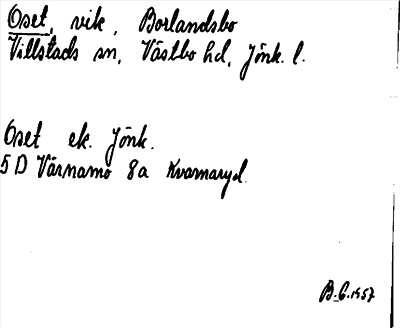 Oset, vik, Borlandsbo
Villstads sn, Västbo hd, Jönk. l.
Oset ek. Jönk.
5D Värnamo 8a Kvarnaryd
B.G. 1957